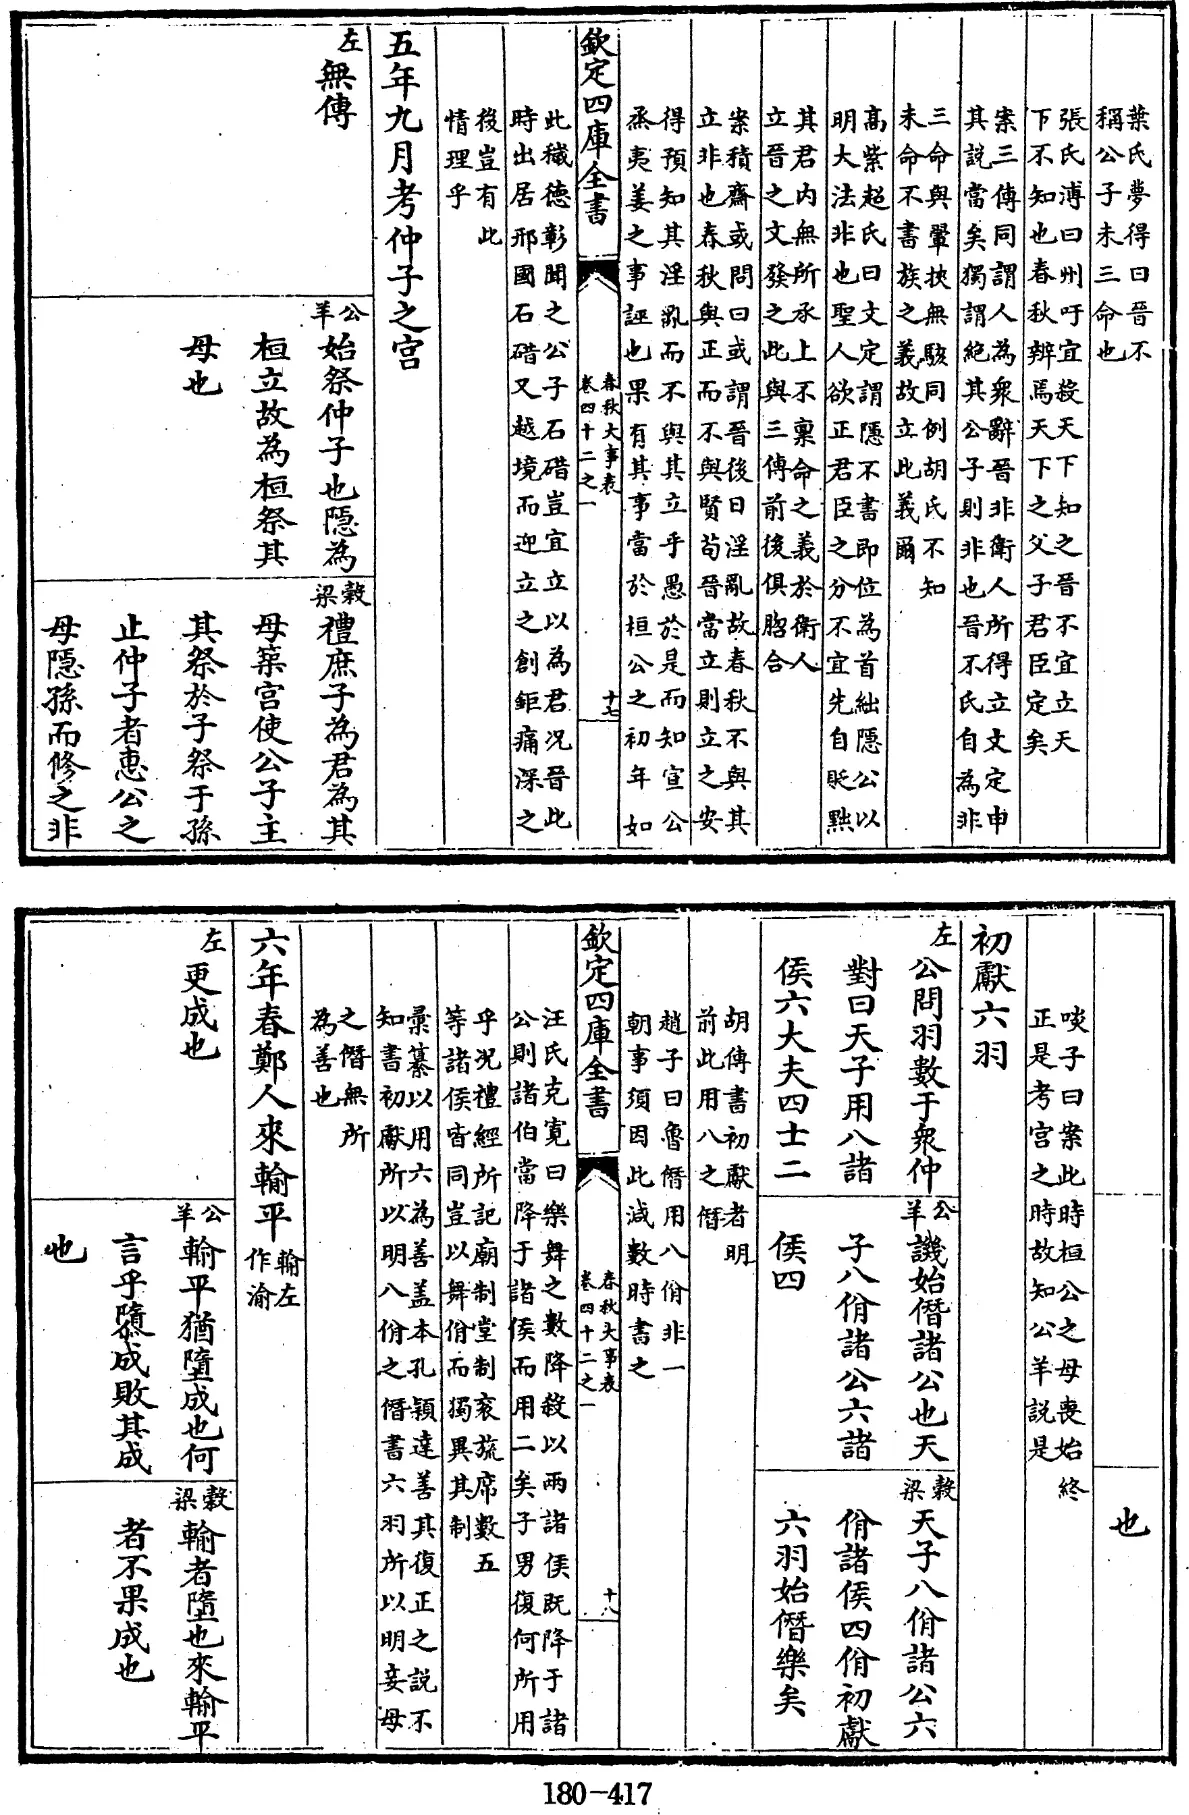 葉氏夢得曰晉不
稱公子未三命也
張氏溥曰州吁宜殺天下知之晉不宜立天
下不知也春秋辨焉天下之父子君臣定矣
案三傳同謂人為衆辭晉非衛人所得立文定申
其説當矣獨謂絶其公子則非也晉不氏自為非
三命與翬挾無駭同例胡氏不知
未命不書族之義故立此義爾
高紫超氏曰文定謂隱不書即位為首絀隱公以
明大法非也聖人欲正君臣之分不宜先自貶黜
其君内無所承上不稟命之義於衛人
立晉之文發之此與三傳前後俱脗合
案積齋或問曰或謂晉後日淫亂故春秋不與其
立非也春秋與正而不與賢苟晉當立則立之安
得預知其淫亂而不與其立乎愚於是而知宣公
烝夷姜之事誣也果有其事當於桓公之初年如
欽定四庫全書
春秋大事表
卷四十二之一
十七
此穢德彰聞之公子石碏豈宜立以為君况晉此
時出居邢國石碏又越境而迎立之創鉅痛深之
後豈有此
情理乎
五年九月考仲子之宫
左
無傳
公羊
始祭仲子也隱為
桓立故為桓祭其
母也
穀梁
禮庶子為君為其
母築宫使公子主
其祭於子祭于孫
止仲子者惠公之
母隱孫而修之非
也
啖子曰案此時桓公之母喪始終
正是考宫之時故知公羊説是
初獻六羽
左
公問羽數于衆仲
對曰天子用八諸
侯六大夫四士二
公羊
譏始僭諸公也天
子八佾諸公六諸
侯四
穀梁
天子八佾諸公六
佾諸侯四佾初獻
六羽始僭樂矣
胡傳書初獻者明
前此用八之僭
趙子曰魯僭用八佾非一
朝事須因此減數時書之
欽定四庫全書
春秋大事表
卷四十二之一
十八
汪氏克寛曰樂舞之數降殺以兩諸侯既降于諸
公則諸伯當降于諸侯而用二矣子男復何所用
乎况禮經所記廟制堂制衮旒席數五
等諸侯皆同豈以舞佾而獨異其制
彙纂以用六為善盖本孔穎達善其復正之説不
知書初獻所以明八佾之僭書六羽所以明妾母
之僭無所
為善也
六年春鄭人來輸平
輸左
作渝
左
更成也
公羊
輸平猶墮成也何
言乎墮成敗其成
也
穀梁
輸者墮也來輸平
者不果成也
180-417